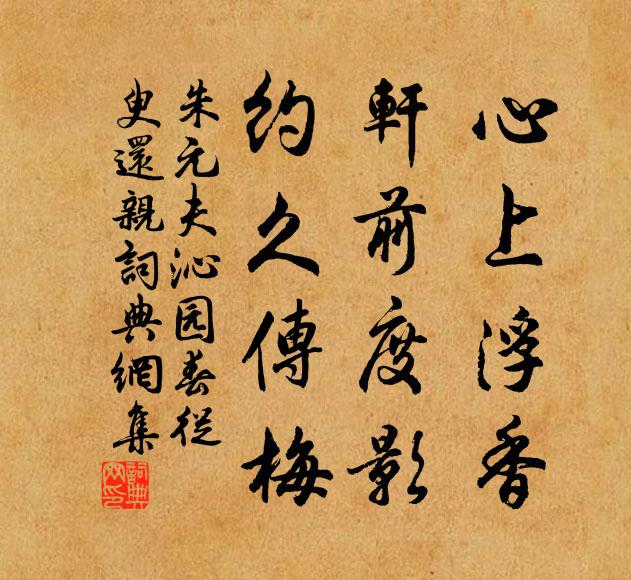 心上浮香
軒前度影
約久傳梅
朱元夫沁园春從
叟還親詞典網集
詞典網印